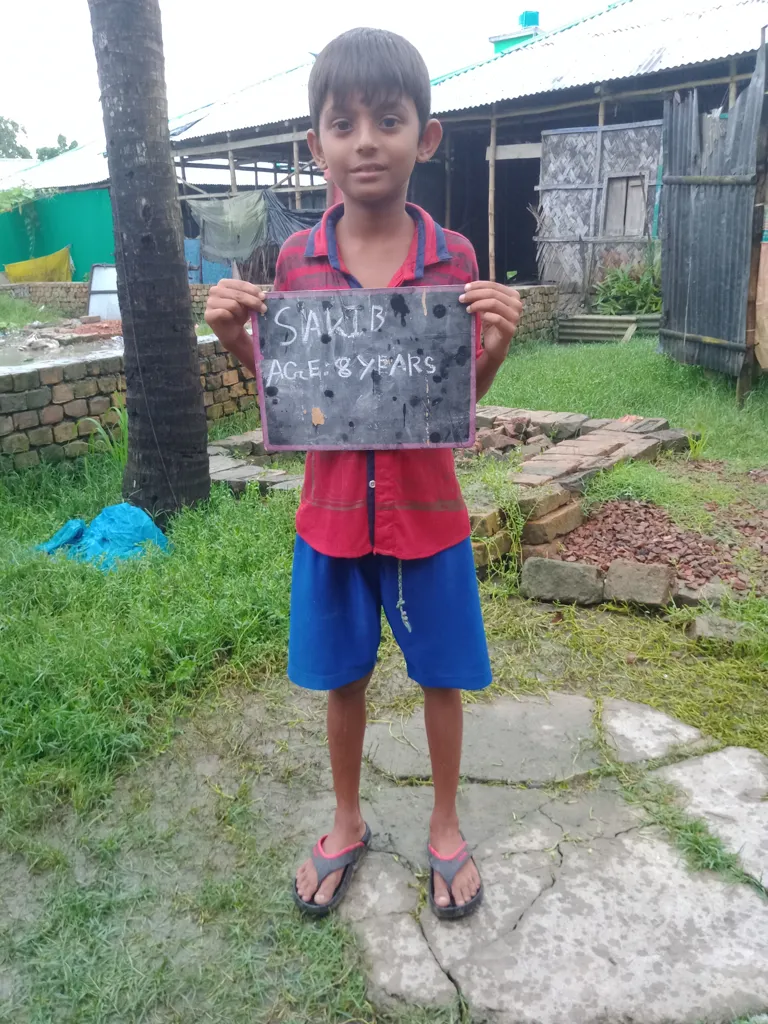 SAKIB
AGE: 8 YEARS